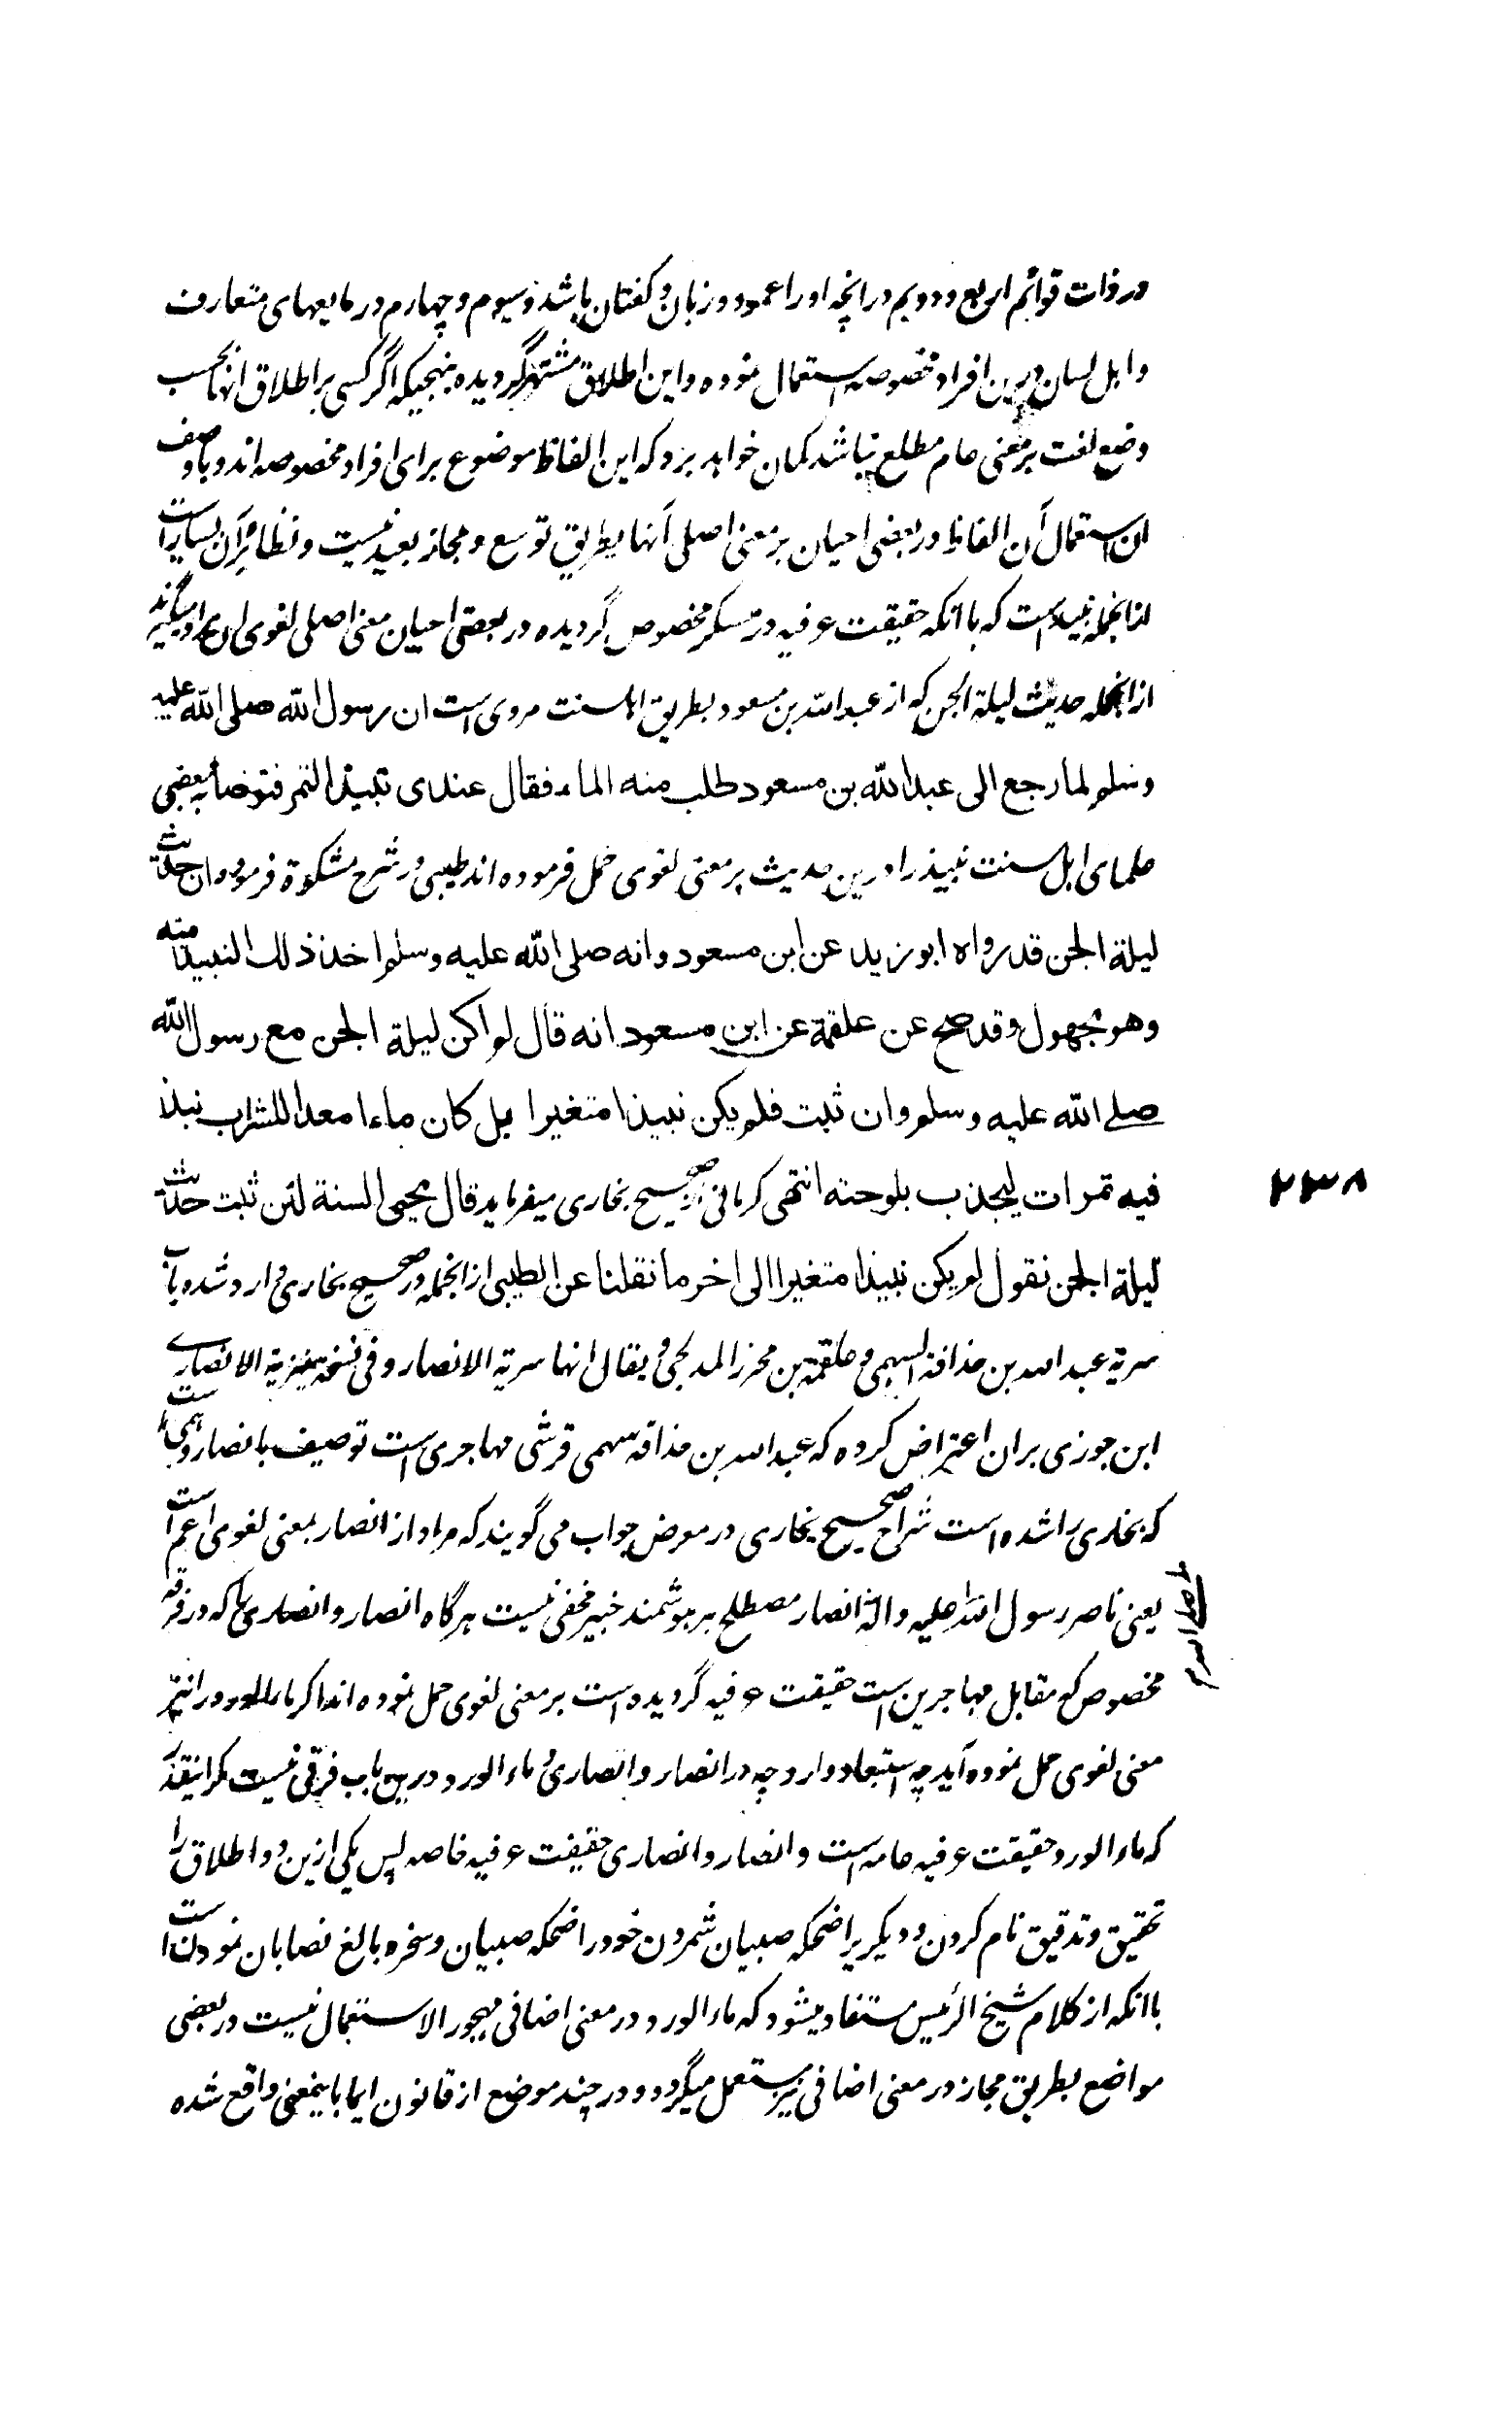 در ذات قوائم اربع و دویم در انچه او را عمود و زبان و کفتان باشد و سیوم و چهارم در مایعهای متعارف
و اهل لسان درین افراد مخصوصه استعمال نموده و این اطلاق مشتهر گردیده بنهجیکه اگر کسی بر اطلاق انها بحسب
وضع لغت بر معنی عام مطلع نباشد گمان خواهد برد که این الفاظ موضوع برای افراد مخصوصه اند و با وصف
ان استعمال آن الفاظ در بعضی احیان بر معنی اصلی آنها بطریق توسع و مجاز بعید نیست و نظائر آن بسیار است
ازانجمله نبیذ است که با آنکه حقیقت عرفیه در مسکر مخصوص گردیده در بعضی احیان معنی اصلی لغوی ان مراد میگیرند
ازانجمله حدیث لیلة الجن که از عبد الله بن مسعود بطریق اهلسنت مروی است ان رسول الله صلی الله علیه
وسلم لما رجع الی عبد الله بن مسعود طلب منه الماء فقال عندی نبیذ التمر فتوضأ به بعضی
علمای اهل سنت نبیذ را درین حدیث بر معنی لغوی حمل فرموده اند طیبی در شرح مشکوة فرموده ان حدیث
لیلة الجن قد رواه ابو زید عن ابن مسعود وانه صلی الله علیه وسلم اخذ ذلک النبیذ منه
وهو مجهول وقد صح عن علقمة عن ابن مسعود انه قال لم اکن لیلة الجن مع رسول الله
صلی الله علیه وسلم وان ثبت فلم یکن نبیذا متغیرا بل کان ماءا معدا للشراب نبذ
فیه تمرات لیجذب بلوحته انتهی کرمانی در صحیح بخاری میفرماید قال محیی السنة لئن ثبت حدیث
لیلة الجن نقول لم یکن نبیذا متغیرا الی اخر ما نقلنا عن الطیبی ازانجمله در صحیح بخاری وارد شده باب
سریة عبد الله بن حذافة السهمی و علقمة بن محرز المدلجی و یقال انها سریة الانصار و فی نسخة سریة الانصاری
ابن جوزی بران اعتراض کرده که عبد الله بن حذافه سهمی قرشی مهاجری است توصیف بانصار وهمی است
که بخاری را شده است شراح صحیح بخاری در معرض جواب می گویند که مراد از انصار بمعنی لغوی اعم است
یعنی ناصر رسول الله علیه و اله انصار مصطلح بر هوشمند خبیر مخفی نیست هرگاه انصار و انصاری را که در فرقه
مخصوص که مقابل مهاجرین است حقیقت عرفیه گردیده است بر معنی لغوی حمل نموده اند اگر ماء الورد را نیز بر
معنی لغوی حمل نموده آید چه استبعاد دارد چه در انصار و انصاری و ماء الورد درین باب فرقی نیست مگر اینقدر
که ماء الورد حقیقت عرفیه عامه است و انصار و انصاری حقیقت عرفیه خاصه پس یکی ازین دو اطلاق را
تحقیق و تدقیق نام کردن و دیگر را ضحکه صبیان شمردن خود را ضحکه صبیان و سخره بالغ نصابان نمودن است
با انکه از کلام شیخ الرئیس مستفاد میشود که ماء الورد در معنی اضافی مهجور الاستعمال نیست در بعضی
مواضع بطریق مجاز در معنی اضافی نیز مستعمل میگردد و در چند موضع از قانون ایما باینمعنی واقع شده
۲۳۸